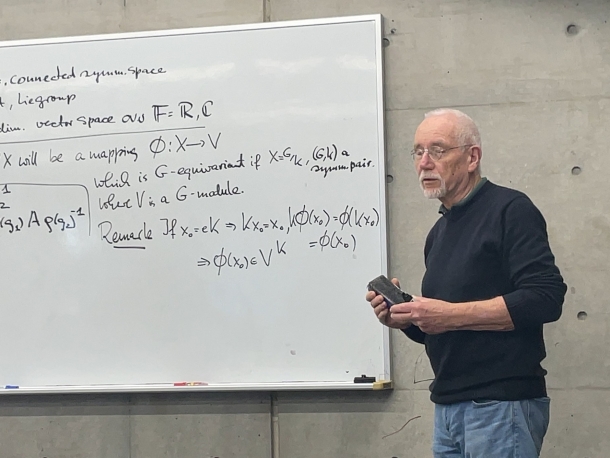 , connected symm. space
, Lie group
dim. vector space over 𝔽 = ℝ, ℂ
X will be a mapping Φ: X → V
which is G-equivariant if X = G/K, (G,K) a
symm pair.
where V is a G-module.
(g₂) A ρ(g₂)⁻¹
Remark If x₀ = eK ⇒ Kx₀ = x₀, kΦ(x₀) = Φ(kx₀)
= Φ(x₀)
⇒ Φ(x₀) ∈ V^K